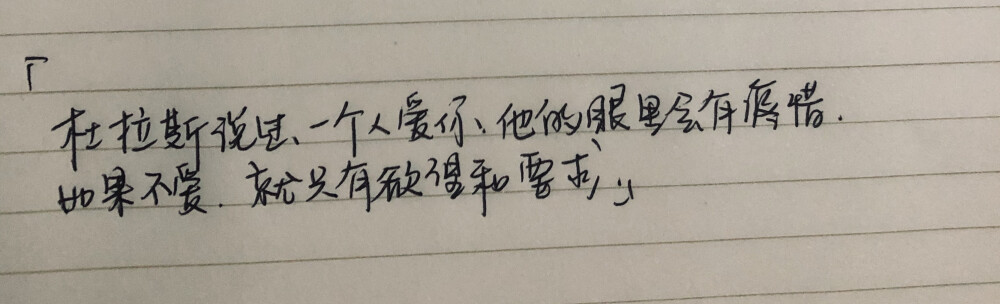 「
杜拉斯说过、一个人爱你、他的眼里会有疼惜.
如果不爱.就只有欲望和要求」